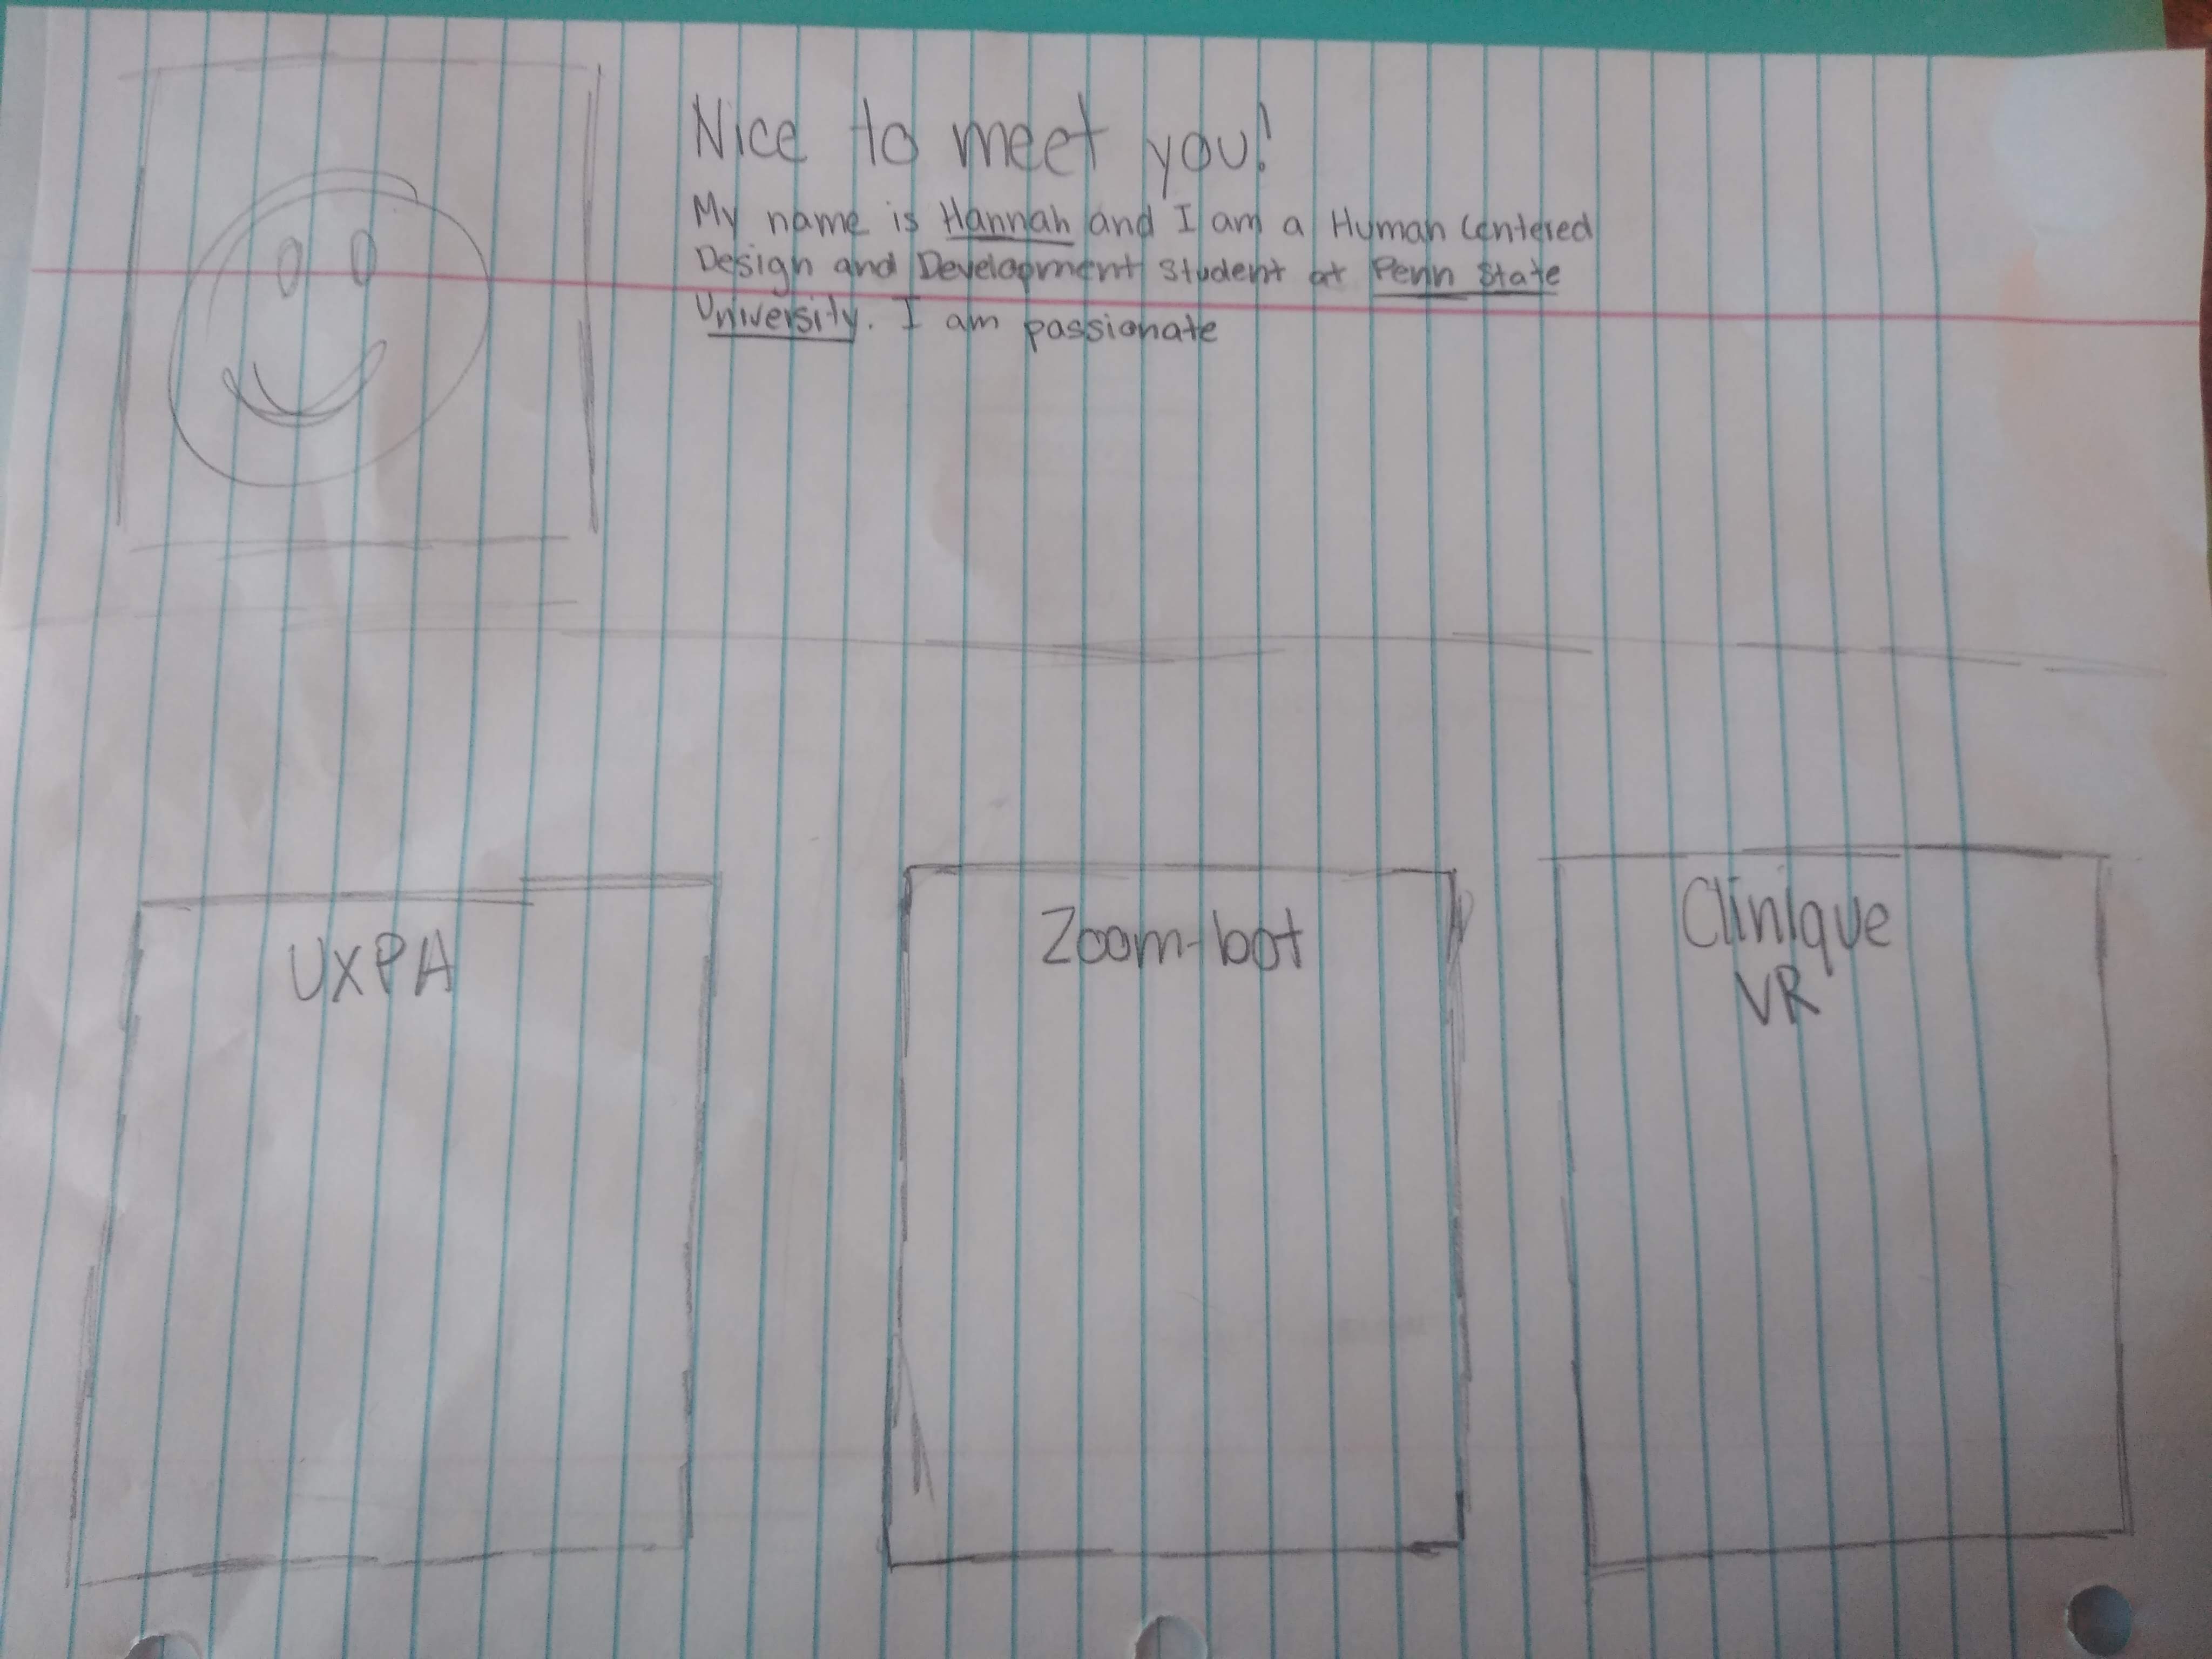 Nice to meet you!
My name is Hannah and I am a Human Centered
Design and Development Student at Penn State
University. I am passionate
UXPA
Zoom-bot
Clinique
VR